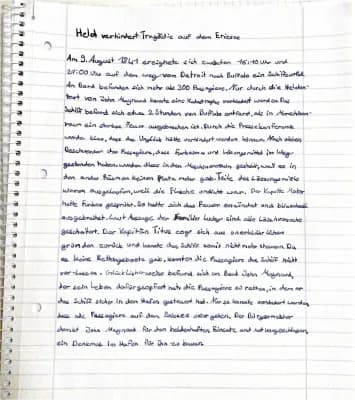 Held verhindert Tragödie auf dem Eriesee
Am 9. August 1841 ereignete sich zwischen 16:10 Uhr und
21:00 Uhr auf dem weg von Detroit nach Buffalo ein Schiffsunfall.
An Bord befanden sich mehr als 300 Passagiere. Nur durch die Helden-
tat von John Maynard konnte eine Katastrophe verhindert werden. Das
Schiff befand sich etwa 2 Stunden von Buffalo entfernt, als im Maschinen-
raum ein starkes Feuer ausgebrochen ist. Durch die Pressekonferenz
wurde klar, dass das Unglück hätte verhindert werden können. Nach
Beschwerden der Passagiere, dass Farbeimer und Lösungsmittel im Weg
gestanden haben, wurden diese in den Maschinenraum gestellt, weil es in
den andere Räumen keinen Platz mehr gab. Teile des Lösungsmittels
waren ausgelaufen, weil die Flasche undicht war. Der Kapitän Motor
hatte Funken gesprüht. So hatte sich das Feuer entzündet und
ausgebreitet. Laut Aussage der Familie sind alle Löschversuche
gescheitert. Der Kapitän Titus zog sich aus unerklärlichen
gründen zurück und konnte das Schiff somit nicht mehr steuern. Da
es keine Rettungsboote gab, konnten die Passagiere das Schiff nicht
verlassen. Glücklicherweise befand sich an Bord John Maynard,
der sein Leben dafür geopfert hat die Passagiere zu retten, in dem er
das Schiff sicher in den Hafen gesteuert hat. Nur so konnte verhindert werden,
dass alle Passagiere auf dem Eriesee Der Bürgermeister
dankt John Maynard für den heldenhaften Einsatz und hat vorgeschlagen,
ein Denkmal im Hafen für ihn zu bauen.